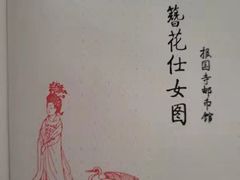 簪花仕女图
报国寺邮币馆